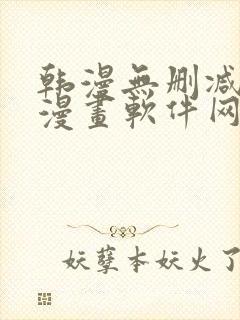 韩漫無删减
漫畫軟件网
妖孽本妖火了